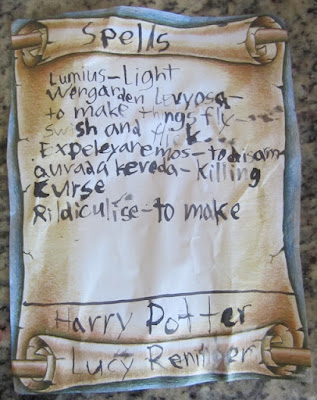 Spells
Lumius-Light
Wengarden Levyosa-
to make things fly
Swish and flick
Expelexaremos-to disarm
auvada keveda-Killing
Kurse
Rildiculise-to make
Harry Potter
Lucy